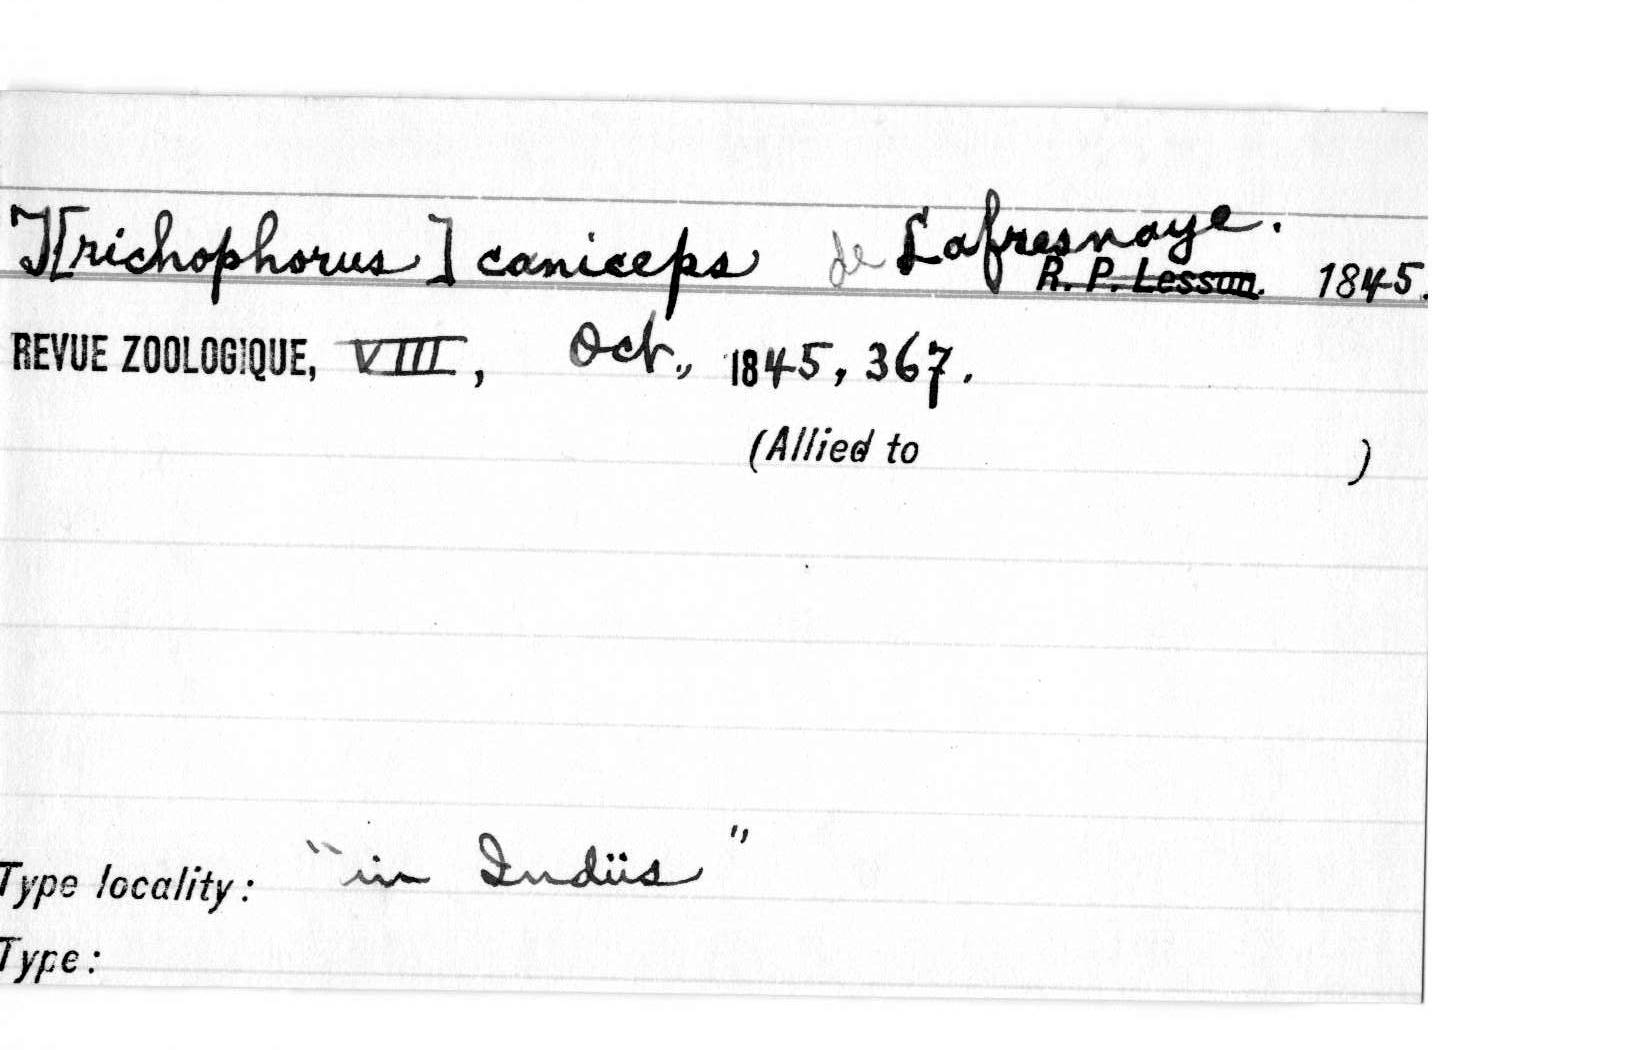 T[richophorus] caniceps de Lafresnaye.
R. P. Lesson. 1845.
REVUE ZOOLOGIQUE, VIII, Oct., 1845, 367.
(Allied to )
Type locality: "in Indiis"
Type: